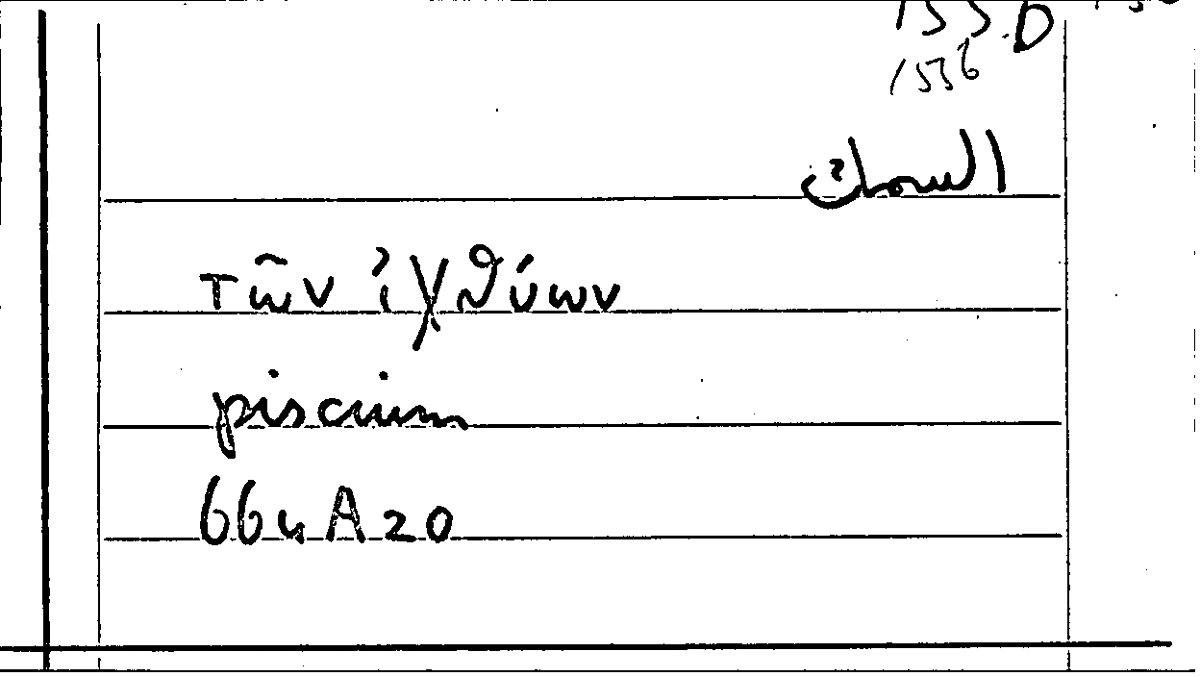 1536
السمك
τῶν ἰχθύων
piscium
664A20